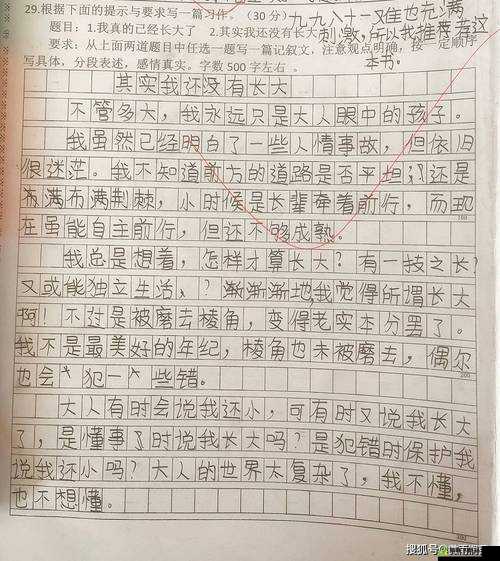 29.根据下面的提示与要求写一篇习作。（30分）
九九八十一难也充满
题目：1.我真的已经长大了 2.其实我还没有长大
刺激，所以我推荐这
要求：从上面两道题目中任选一题写一篇记叙文，注意观点明确，按一定顺序
本书。
写具体，分段表述，感情真实。字数500字左右。
其实我还没有长大
不管多大，我永远只是大人眼中的孩子。
我虽然已经明白了一些人情事故，但依旧
很迷茫。我不知道前方的道路是否平坦 还是
布满布满荆棘，小时候是长辈牵着前行，而现
100
在虽能自主前行，但还不够成熟。
我总是想着，怎样才算长大？有一技之长？
又或能独立生活、？渐渐渐地，我觉得所谓长大
啊！不过是被磨去棱角，变得老实本分罢了。
我不是最美好的年纪，棱角也未被磨去，偶尔
200
也会 犯一 些错。
大人有时会说我还小，可有时又说我长大
了，是懂事了时说我长大吗？是犯错时保护我
说我还小吗？大人的世界太复杂了，我不懂，
也不想懂。
300
搜狐号@